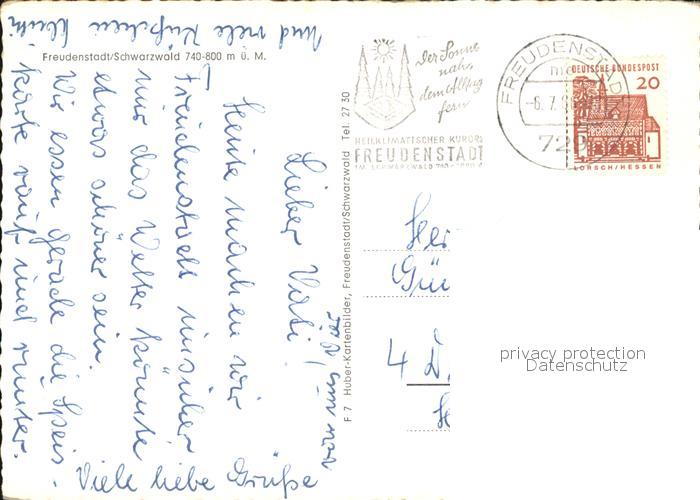 Freudenstadt/Schwarzwald 740-800 m ü. M.
Lieber Vati!
Heute machen wir
Freudenstadt unsicher
nur das Wetter könnte
etwas schöner sein.
Wir essen gerade die Speis-
karte rauf und runter.
Viele liebe Grüße
und viele Küßchen
F 7 Huber-Kartenbilder, Freudenstadt/Schwarzwald Tel. 27 30
Der Sonne
nah,
dem Alltag
fern
HEILKLIMATISCHER KURORT
FREUDENSTADT
IM SCHWARZWALD 740-1000 m
FREUDENSTADT
-6.7.
729
DEUTSCHE BUNDESPOST
20
LORSCH/HESSEN
Her
Gü
4 D.
privacy protection
Datenschutz